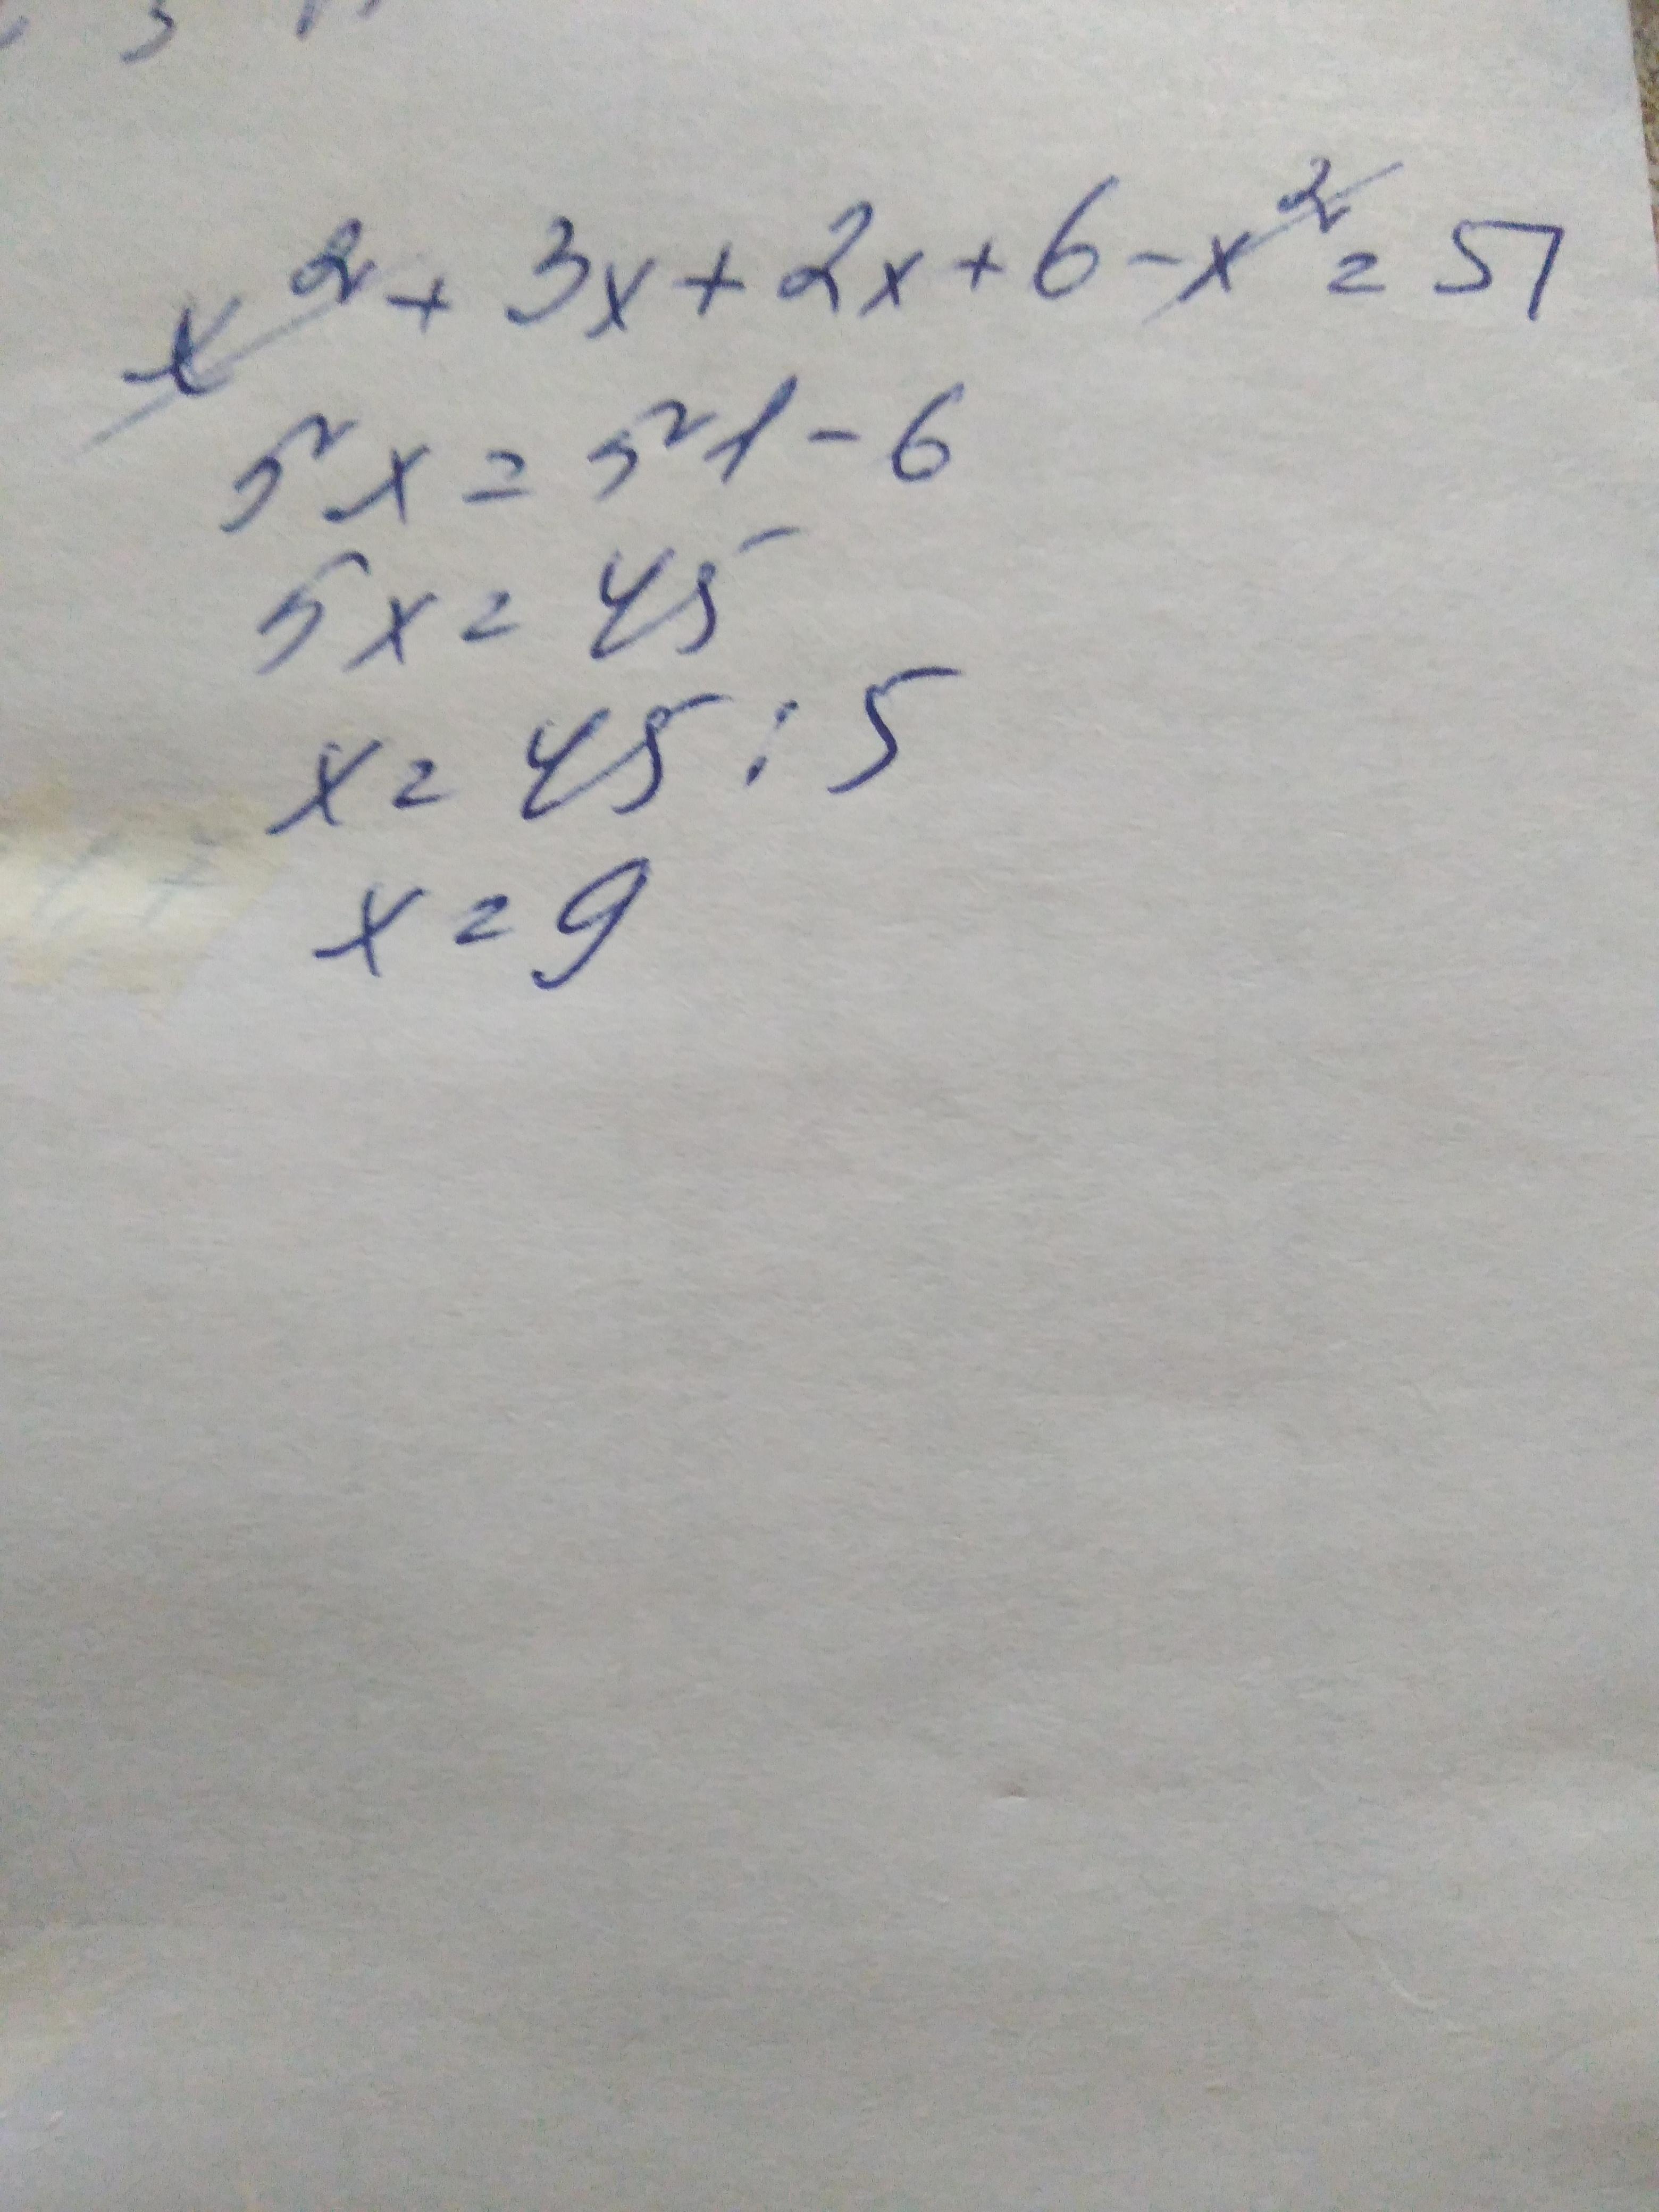 x² + 3x + 2x + 6 - x² = 51
5x = 51 - 6
5x = 45
x = 45 : 5
x = 9